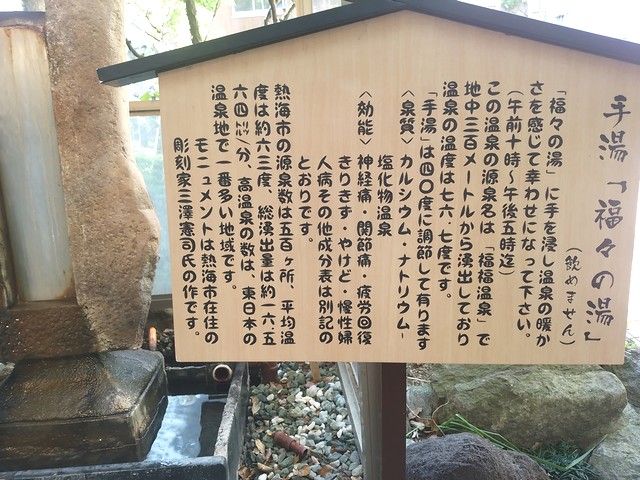 手湯「福々の湯」
(飲めません)
「福々の湯」に手を浸し温泉の暖か
さを感じて幸わせになって下さい。
(午前十時〜午後五時迄)
この温泉の源泉名は「福福温泉」で
地中三百メートルから湧出しており
温泉の温度は七六.七度です。
「手湯」は四〇度に調節して有ります
〈泉質〉カルシウム・ナトリウム-
塩化物温泉
〈効能〉神経痛・関節痛・疲労回復
きりきず・やけど・慢性婦
人病その他成分表は別記の
とおりです。
熱海市の源泉数は五百ヶ所、平均温
度は約六三度、総湧出量は約一六.五
六四㍑/分、高温泉の数は、東日本の
温泉地で一番多い地域です。
モニュメントは熱海市在住の
彫刻家三澤憲司氏の作です。